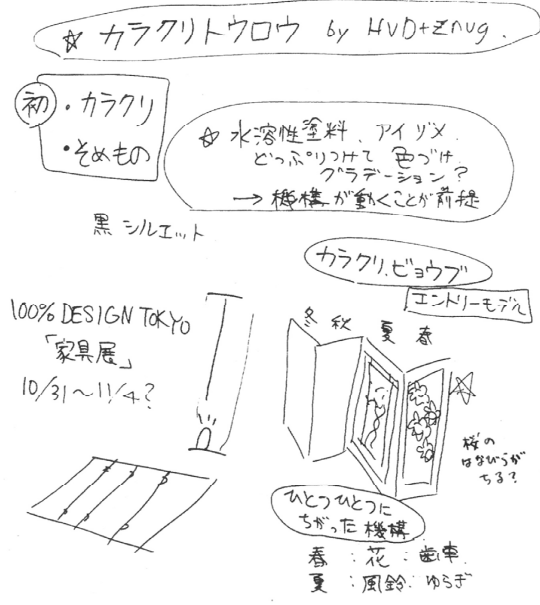 ☆ カラクリトウロウ by HVD+znug.
初
・カラクリ
・そめもの
☆ 水溶性塗料、アイゾメ.
どっぷりつけて 色づけ
グラデーション?
→ 機構が動くことが前提
黒 シルエット
カラクリ.ビョウブ
エントリーモデル
100% DESIGN TOKYO
「家具展」
10/31〜11/4?
冬 秋 夏 春
桜の
はなびらが
ちる?
ひとつひとつに
ちがった機構
春 : 花 : 歯車
夏 : 風鈴 : ゆらぎ